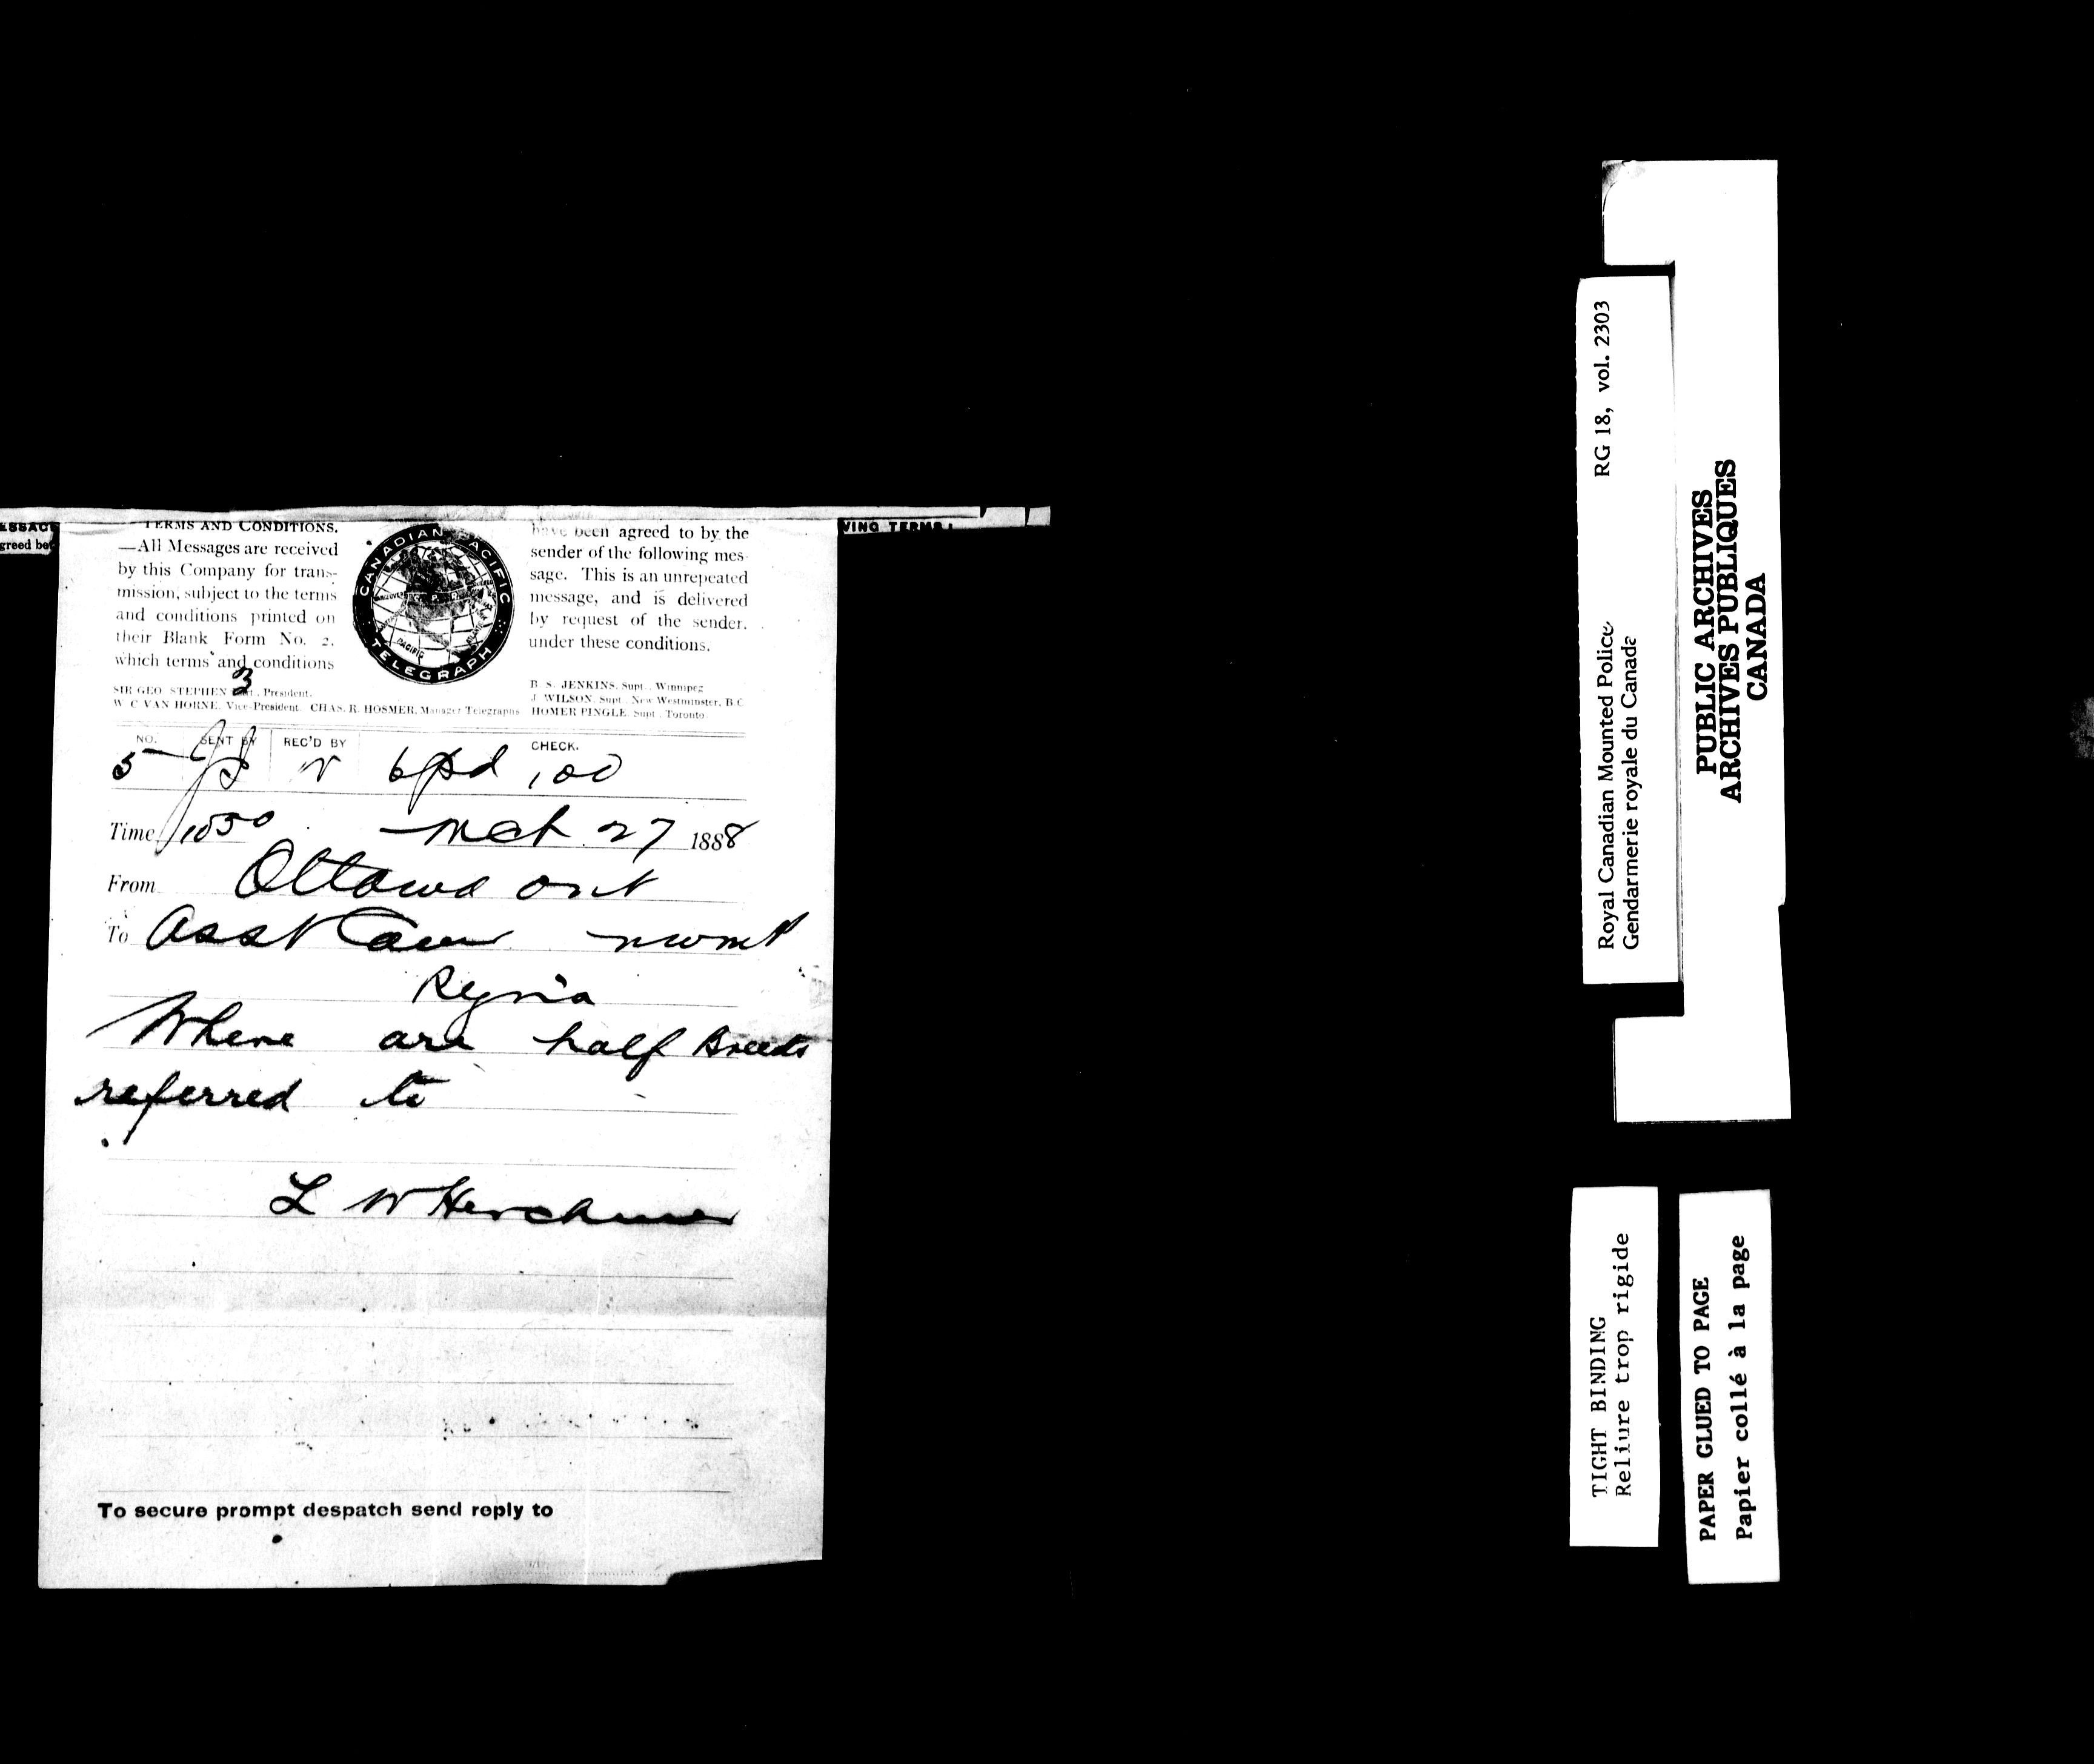 ESSAGE
greed be
VING TERMS:
TERMS AND CONDITIONS.
—All Messages are received
by this Company for trans-
mission, subject to the terms
and conditions printed on
their Blank Form No. 2.
which terms and conditions
CANADIAN PACIFIC
TELEGRAPH
C. P. R.
PACIFIC
have been agreed to by the
sender of the following mes-
sage. This is an unrepeated
message, and is delivered
by request of the sender.
under these conditions.
3
SIR GEO. STEPHEN President.
W C VAN HORNE, Vice-President. CHAS. R. HOSMER, Manager Telegraphs
B. S. JENKINS, Supt., Winnipeg
J. WILSON, Supt. New Westminster, B.C
HOMER PINGLE, Supt., Toronto.
NO. SENT BY REC'D BY CHECK.
5 6pd 100
Time 1050 27 1888
From Ottawa ont
To Asst Com nwmp
Regina
Where are half Breeds
referred to
L W Herchmer
To secure prompt despatch send reply to
Royal Canadian Mounted Police RG 18, vol. 2303
Gendarmerie royale du Canada
PUBLIC ARCHIVES
ARCHIVES PUBLIQUES
CANADA
TIGHT BINDING
Reliure trop rigide
PAPER GLUED TO PAGE
Papier collé à la page